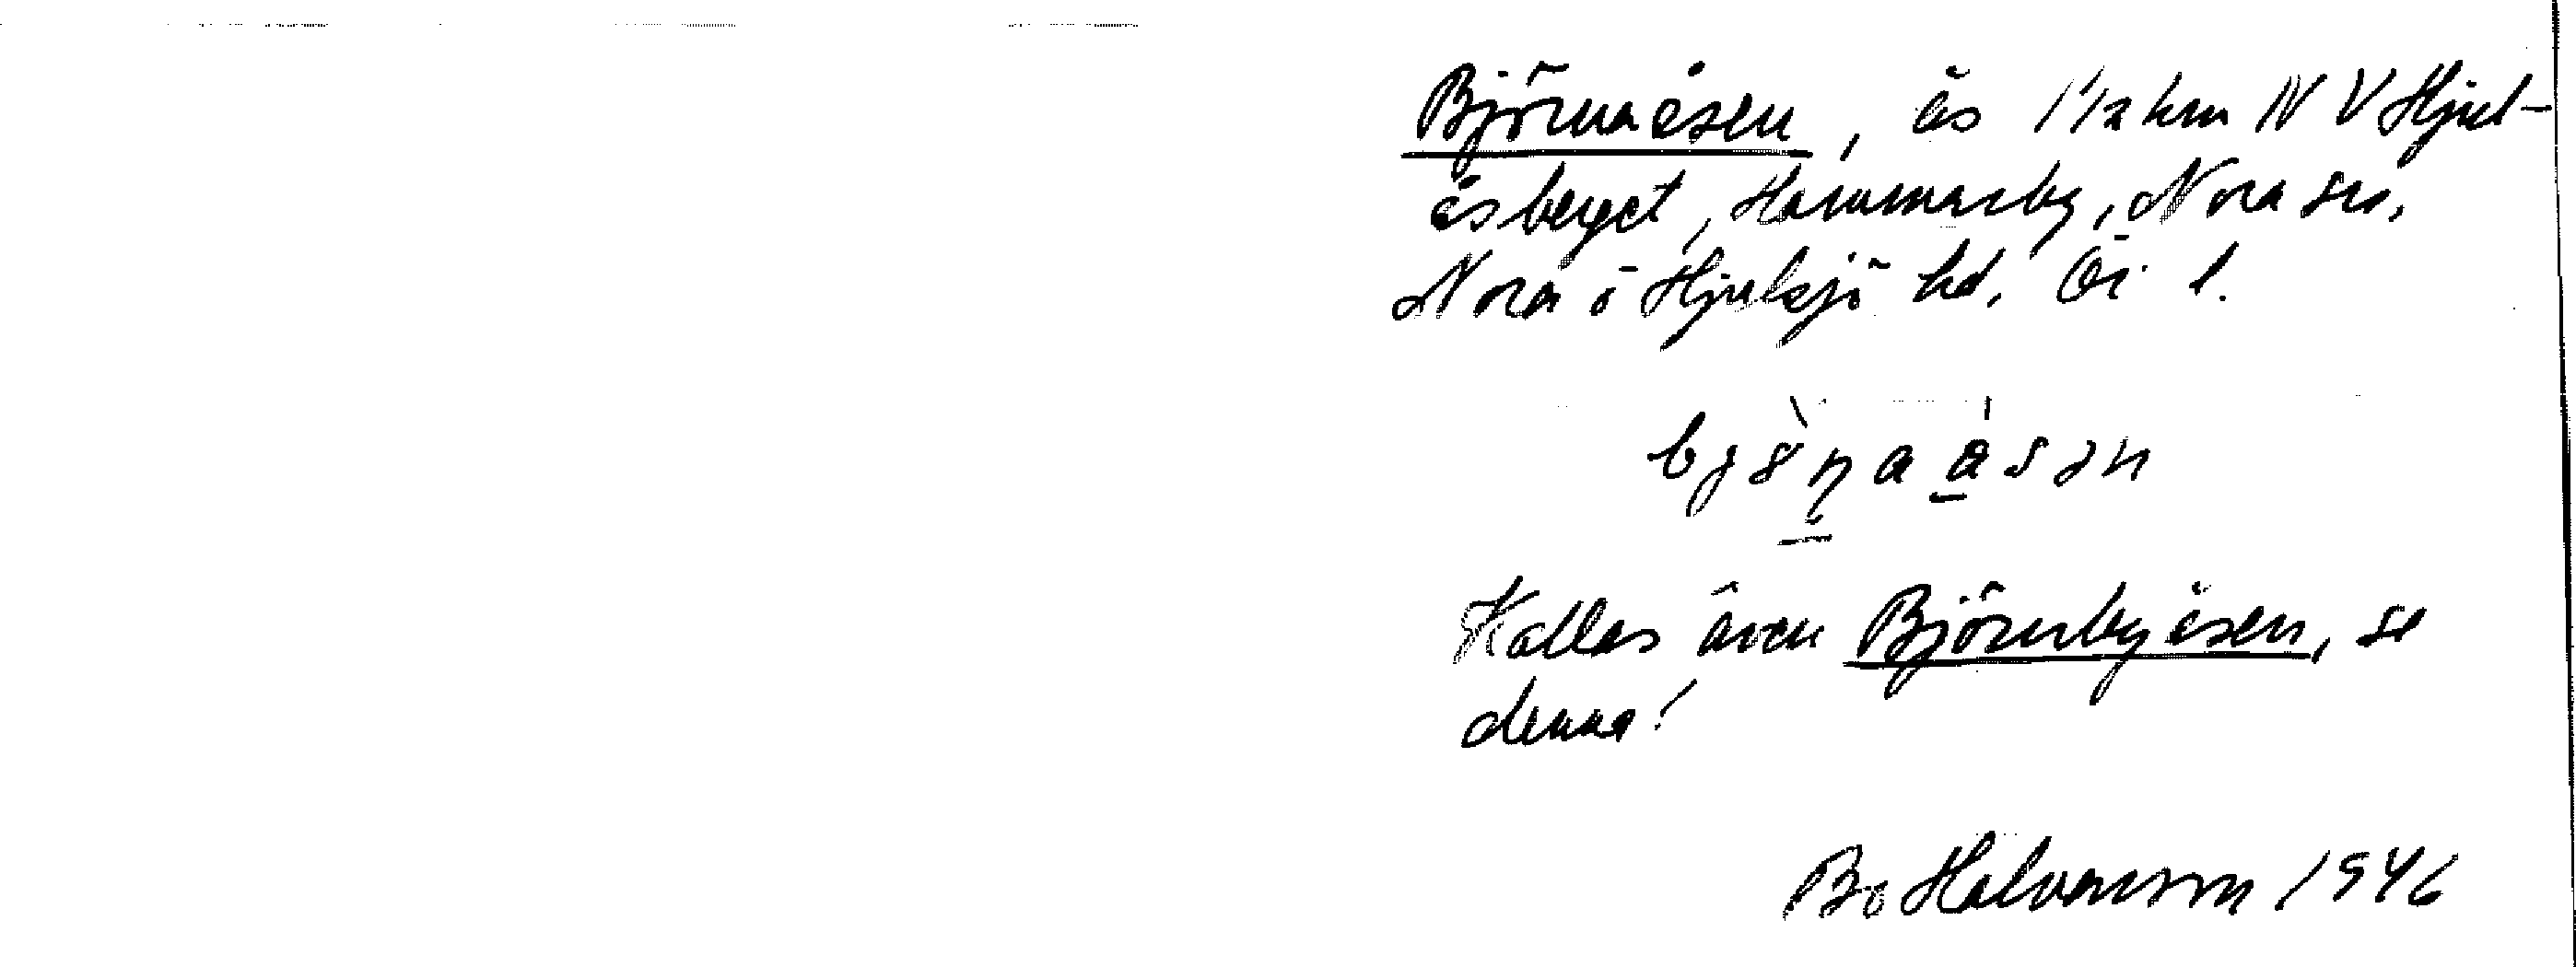 Björnaåsen, ås 1 1/2 km NV Hjul-
åsberget, Hammarby, Nora sn,
Nora o Hjulsjö hd. Ör l.
Kallas även Björnbyåsen, se
denna!
Bo Halvarsson 1946